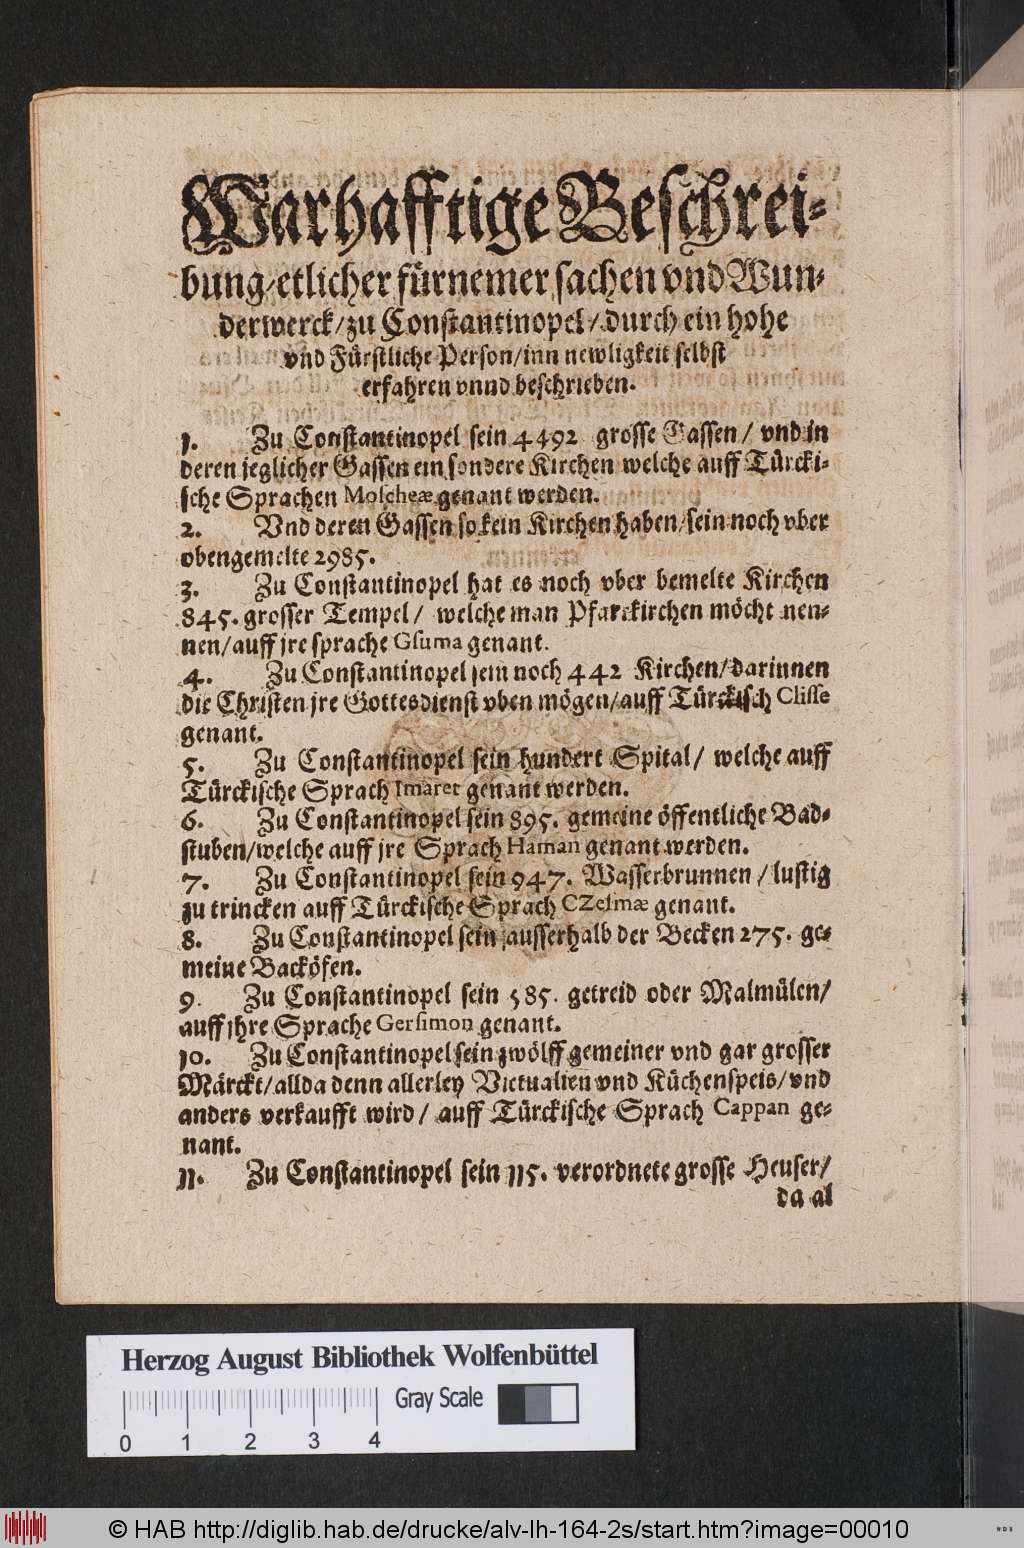 Warhafftige Beschrei-
bung/etlicher fürnemer sachen vnd Wun-
derwerck/zu Constantinopel/durch ein hohe
vnd Fürstliche Person/inn newligkeit selbst
erfahren vnnd beschrieben.
1. Zu Constantinopel sein 4492 grosse Gassen/ vnd in
deren jeglicher Gassen ein sondere Kirchen welche auff Türcki-
sche Sprachen Moscheæ genant werden.
2. Vnd deren Gassen so kein Kirchen haben/sein noch vber
obengemelte 2985.
3. Zu Constantinopel hat es noch vber bemelte Kirchen
845. grosser Tempel/ welche man Pfarrkirchen möcht nen-
nen/auff jre sprache Gsuma genant.
4. Zu Constantinopel sein noch 442 Kirchen/darinnen
die Christen jre Gottesdienst vben mögen/auff Türckisch Clisse
genant.
5. Zu Constantinopel sein hundert Spital/ welche auff
Türckische Sprach Imaret genant werden.
6. Zu Constantinopel sein 895. gemeine öffentliche Bad-
stuben/welche auff jre Sprach Haman genant werden.
7. Zu Constantinopel sein 947. Wasserbrunnen/lustig
zu trincken auff Türckische Sprach CZesmæ genant.
8. Zu Constantinopel sein ausserhalb der Becken 275. ge-
meine Backöfen.
9. Zu Constantinopel sein 585. getreid oder Malmülen/
auff jhre Sprache Gersimon genant.
10. Zu Constantinopel sein zwölff gemeiner vnd gar grosser
Märckt/allda denn allerley Victualien vnd Küchenspeis/vnd
anders verkaufft wird/ auff Türckische Sprach Cappan ge-
nant.
11. Zu Constantinopel sein 115. verordnete grosse Heuser/
da al
Herzog August Bibliothek Wolfenbüttel
Gray Scale
0 1 2 3 4
© HAB http://diglib.hab.de/drucke/alv-lh-164-2s/start.htm?image=00010